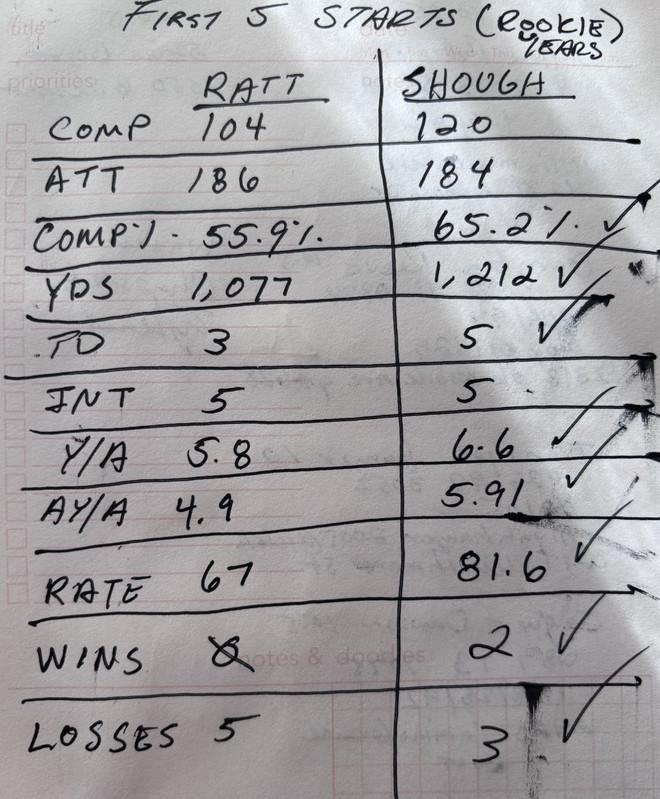 title
FIRST 5 STARTS (ROOKIE)
YEARS
priorities
RATT SHOUGH
COMP 104 120
ATT 186 184
COMP % 55.9% 65.2% ✓
YDS 1,077 1,212 ✓
TD 3 5 ✓
INT 5 5
Y/A 5.8 6.6 ✓
AY/A 4.9 5.91 ✓
RATE 67 81.6 ✓
WINS 0 2 ✓
notes & doodles
LOSSES 5 3 ✓